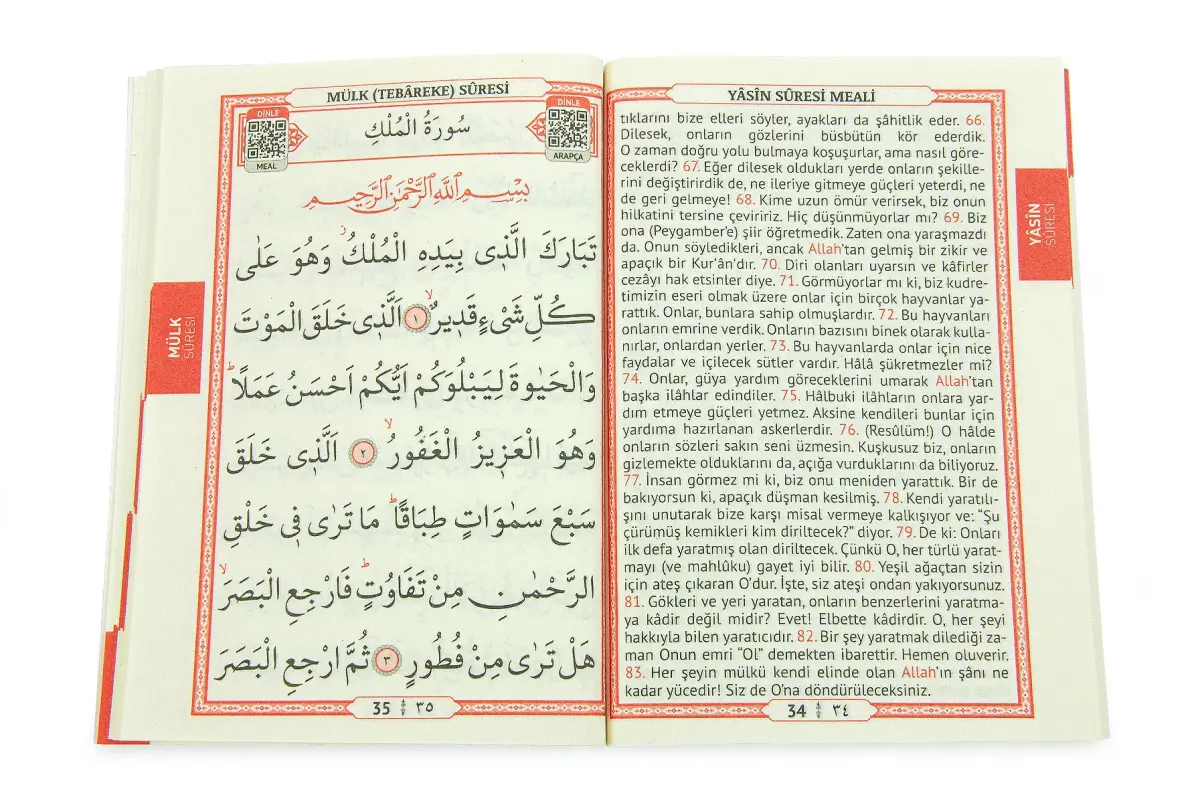 YÂSÎN SÛRESİ MEALİ
tıklarını bize elleri söyler, ayakları da şâhitlik eder. 66.
Dilesek, onların gözlerini büsbütün kör ederdik.
O zaman doğru yolu bulmaya koşuşurlar, ama nasıl göre-
ceklerdi? 67. Eğer dilesek oldukları yerde onların şekille-
rini değiştirirdik de, ne ileriye gitmeye güçleri yeterdi, ne
de geri gelmeye! 68. Kime uzun ömür verirsek, biz onun
hilkatini tersine çeviririz. Hiç düşünmüyorlar mı? 69. Biz
ona (Peygamber'e) şiir öğretmedik. Zaten ona yaraşmazdı
da. Onun söyledikleri, ancak Allah'tan gelmiş bir zikir ve
apaçık bir Kur'ân'dır. 70. Diri olanları uyarsın ve kâfirler
cezâyı hak etsinler diye. 71. Görmüyorlar mı ki, biz kudre-
timizin eseri olmak üzere onlar için birçok hayvanlar ya-
rattık. Onlar, bunlara sahip olmuşlardır. 72. Bu hayvanları
onların emrine verdik. Onların bazısını binek olarak kulla-
nırlar, onlardan yerler. 73. Bu hayvanlarda onlar için nice
faydalar ve içilecek sütler vardır. Hâlâ şükretmezler mi?
74. Onlar, güya yardım göreceklerini umarak Allah'tan
başka ilâhlar edindiler. 75. Hâlbuki ilâhların onlara yar-
dım etmeye güçleri yetmez. Aksine kendileri bunlar için
yardıma hazırlanan askerlerdir. 76. (Resûlüm!) O hâlde
onların sözleri sakın seni üzmesin. Kuşkusuz biz, onların
gizlemekte olduklarını da, açığa vurduklarını da biliyoruz.
77. İnsan görmez mi ki, biz onu meniden yarattık. Bir de
bakıyorsun ki, apaçık düşman kesilmiş. 78. Kendi yaratılı-
şını unutarak bize karşı misal vermeye kalkışıyor ve: “Şu
çürümüş kemikleri kim diriltecek?” diyor. 79. De ki: Onları
ilk defa yaratmış olan diriltecek. Çünkü O, her türlü yarat-
mayı (ve mahlûku) gayet iyi bilir. 80. Yeşil ağaçtan sizin
için ateş çıkaran O'dur. İşte, siz ateşi ondan yakıyorsunuz.
81. Gökleri ve yeri yaratan, onların benzerlerini yaratma-
ya kâdir değil midir? Evet! Elbette kâdirdir. O, her şeyi
hakkıyla bilen yaratıcıdır. 82. Bir şey yaratmak dilediği za-
man Onun emri “Ol” demekten ibarettir. Hemen oluverir.
83. Her şeyin mülkü kendi elinde olan Allah'ın şânı ne
kadar yücedir! Siz de O'na döndürüleceksiniz.
34 ٣٤
YÂSÎN
SÛRESİ
MÜLK (TEBÂREKE) SÛRESİ
DİNLE
MEAL
سُورَةُ الْمُلْكِ
DİNLE
ARAPÇA
بِسْمِ اللّٰهِ الرَّحْمٰنِ الرَّحِيمِ
تَبَارَكَ الَّذٖى بِيَدِهِ الْمُلْكُۘ وَهُوَ عَلٰى
كُلِّ شَىْءٍ قَدٖيرٌۙ ﴿١﴾ اَلَّذٖى خَلَقَ الْمَوْتَ
وَالْحَيٰوةَ لِيَبْلُوَكُمْ اَيُّكُمْ اَحْسَنُ عَمَلًاۜ
وَهُوَ الْعَزٖيزُ الْغَفُورُۙ ﴿٢﴾ اَلَّذٖى خَلَقَ
سَبْعَ سَمٰوَاتٍ طِبَاقًاۜ مَا تَرٰى فٖى خَلْقِ
الرَّحْمٰنِ مِنْ تَفَاوُتٍۜ فَارْجِعِ الْبَصَرَۙ
هَلْ تَرٰى مِنْ فُطُورٍ ﴿٣﴾ ثُمَّ ارْجِعِ الْبَصَرَ
35 ٣٥
MÜLK
SÛRESİ